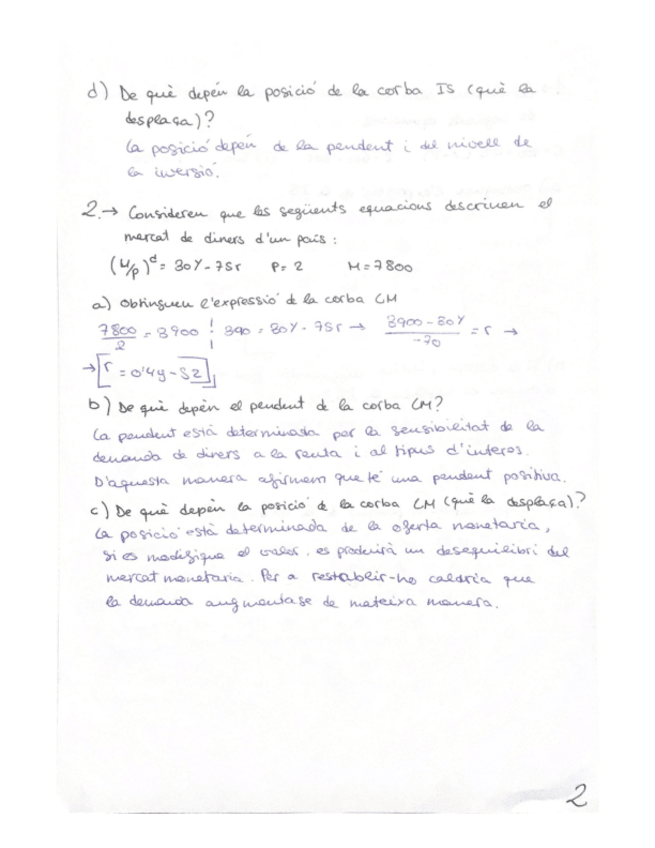 d) De què depèn la posició de la corba IS (què la
desplaça)?
La posició depèn de la pendent i del nivell de
la inversió.
2.→ Consideren que les següents equacions descriuen el
mercat de diners d'un país:
(M/p)^d = 30Y - 75r P= 2 M=7800
a) Obtingueu l'expressió de la corba LM
7800/2 = 3900 ¦ 390 = 30Y - 75r → 3900 - 30Y / -70 = r →
→ [r = 0'4y - 52]
b) De què depèn el pendent de la corba LM?
La pendent està determinada per la sensibilitat de la
demanda de diners a la renta i al tipus d'interes.
D'aquesta manera afirmem que té una pendent positiva.
c) De què depèn la posició de la corba LM (què la desplaça)?
La posició està determinada de la oferta monetaria,
si es modifique el valor, es produirà un desequilibri del
mercat monetaria. Per a restablir-ho caldria que
la demanda augmentase de mateixa manera.
2